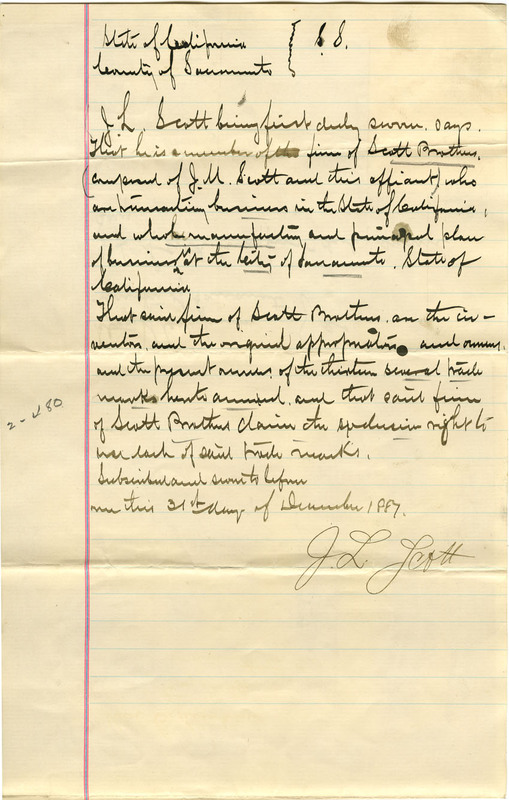 State of California
County of Sacramento } S.S.
J L Scott being first duly sworn. says.
That he is a member of the firm of Scott Brothers.
(composed of J. M. Scott and this affiant) who
are transacting business in the State of California,
and whose manufacting and principal place
of business is at the City of Sacramento. State of
California
That said firm of Scott Brothers are the in-
ventors and the original appropriators and owners,
and the present owners of the thirteen several trade
marks hereto annexed. and that said firm
of Scott Brothers claim the exclusive right to
use each of said trade marks.
Subscribed and sworn to before
me this 31st day of December 1887.
J. L. Scott